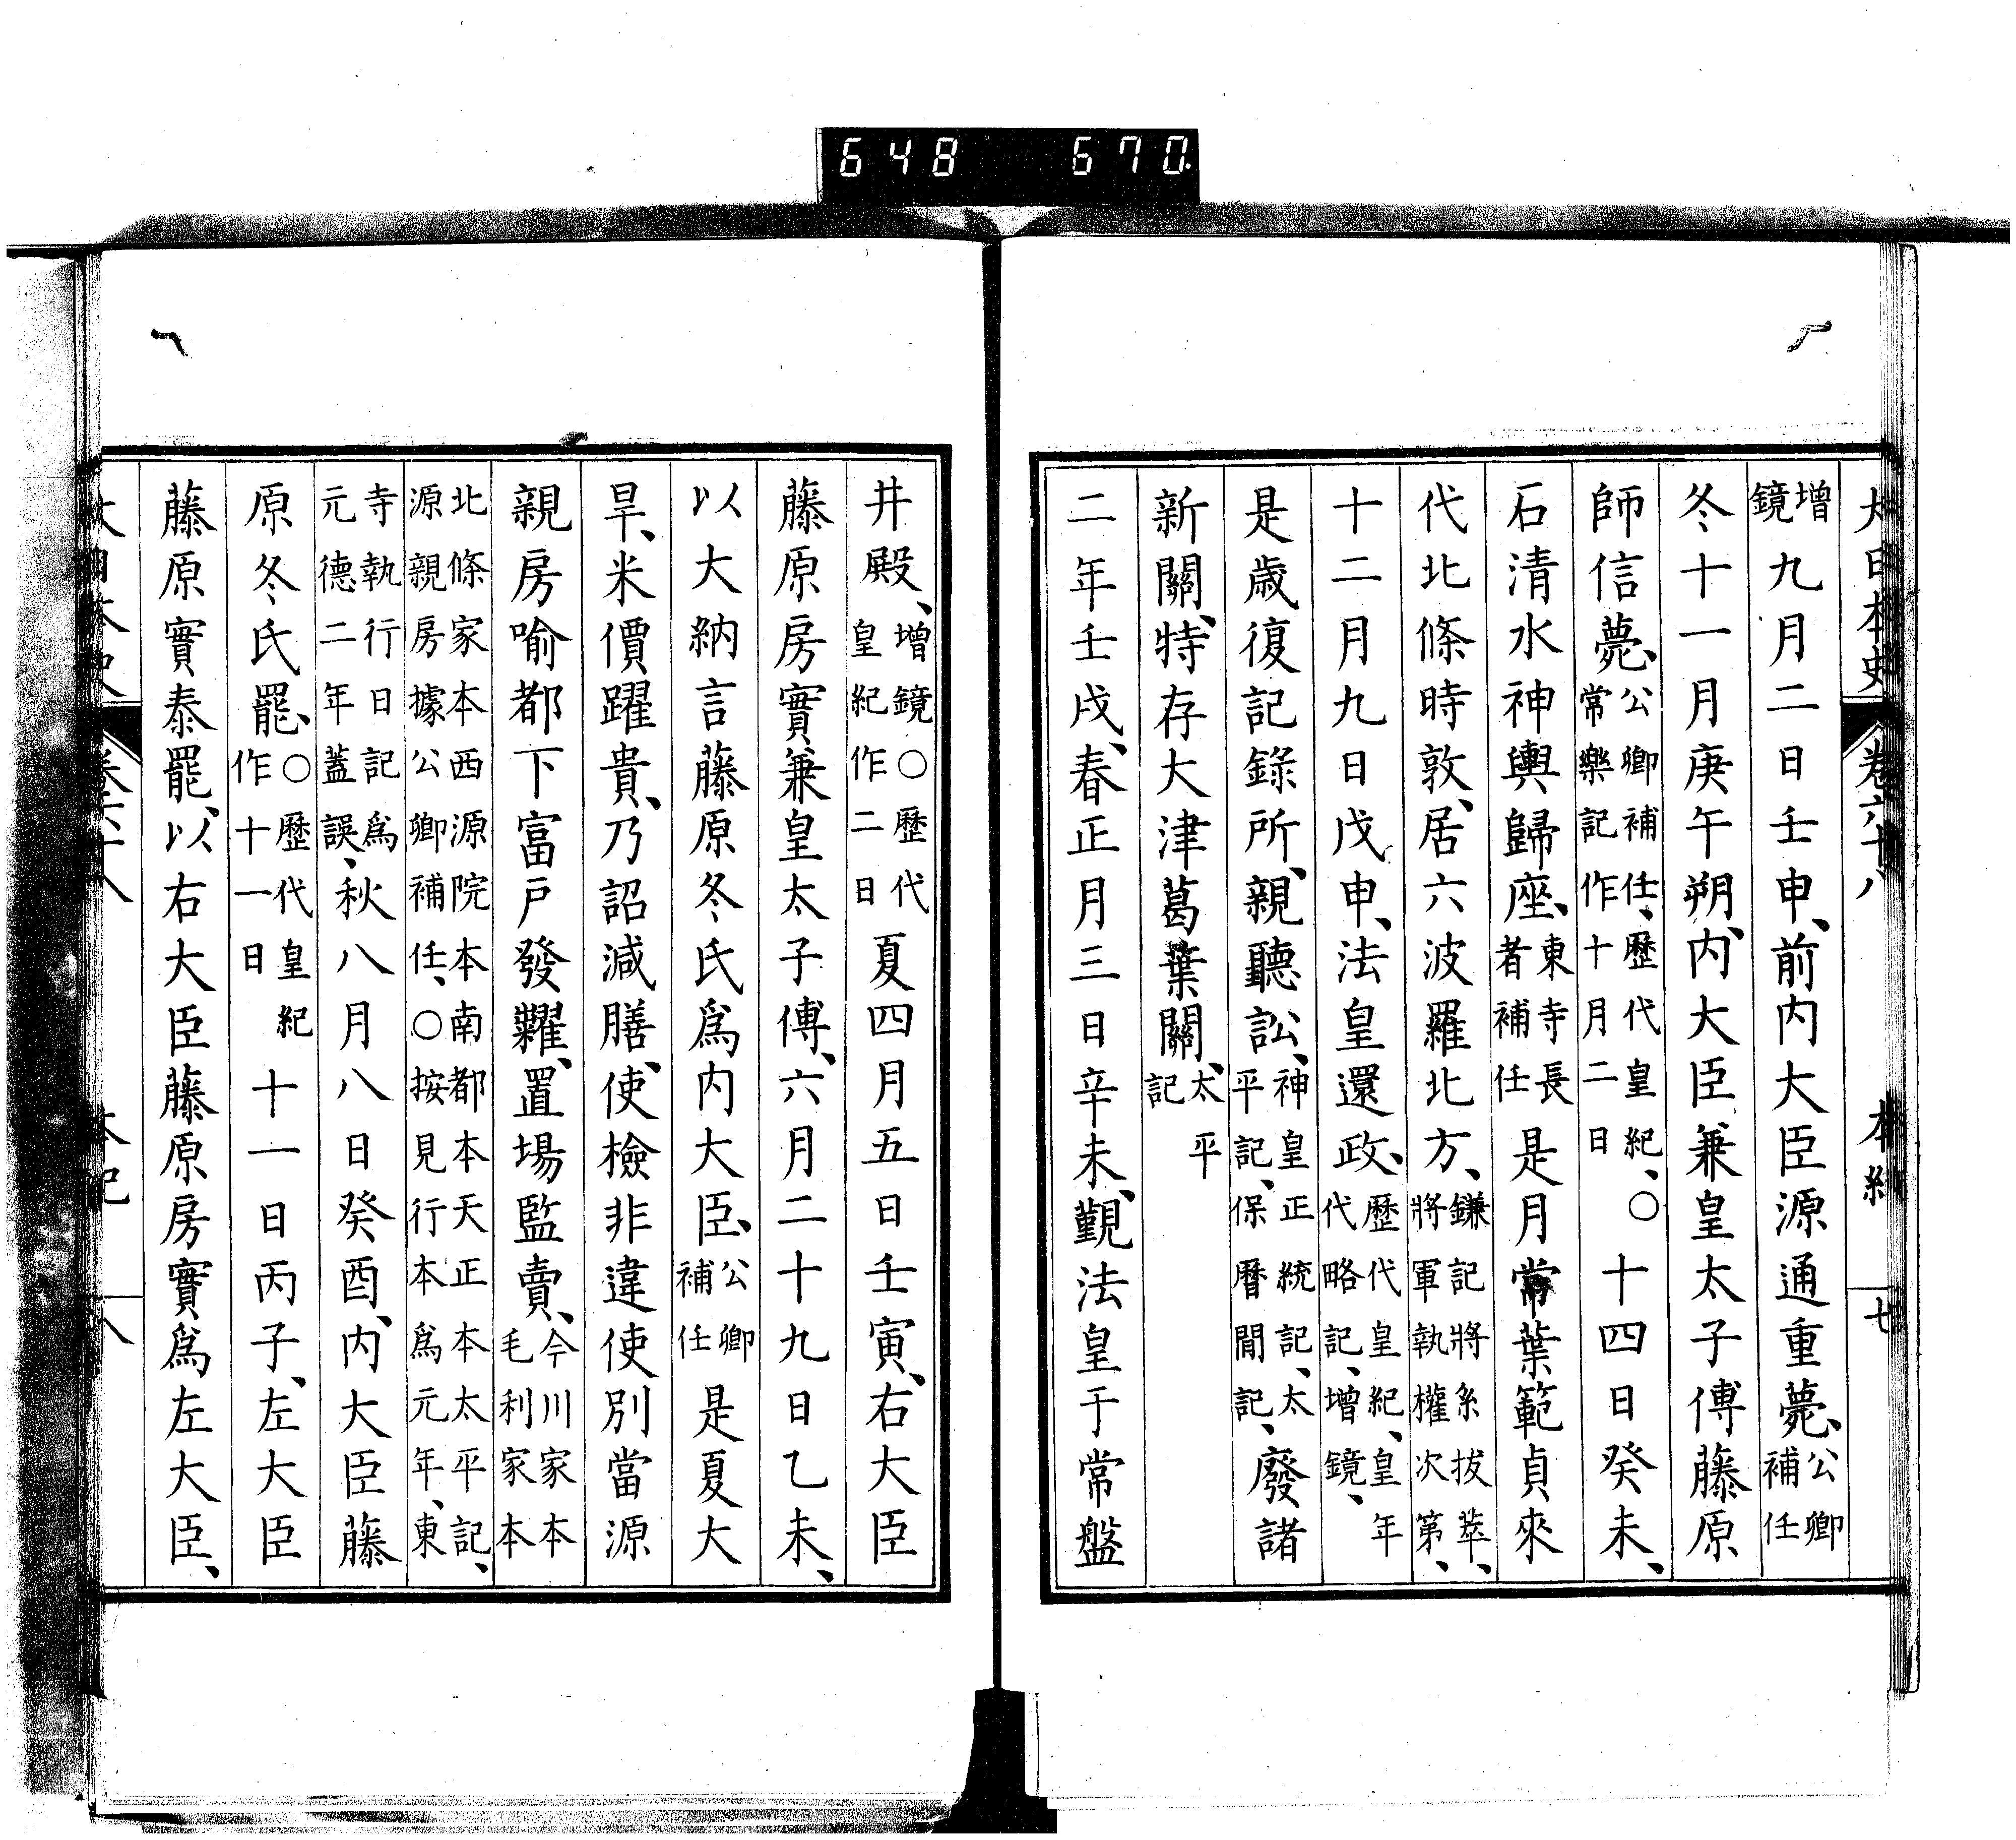 648 670
大日本史 卷六十八 本紀 七
增鏡九月二日壬申、前内大臣源通重薨、公卿補任
冬十一月庚午朔、内大臣兼皇太子傅藤原
師信薨、公卿補任、歷代皇紀、○常樂記作十月二日十四日癸未、
石清水神輿歸座、東寺長者補任是月常葉範貞來
代北條時敦、居六波羅北方、鎌記將系拔萃、將軍執權次第、
十二月九日戊申、法皇還政、歷代皇紀、皇年代略記、增鏡、
是歲復記錄所、親聽訟、神皇正統記、太平記、保曆閒記、廢諸
新關、特存大津葛葉關、太平記
二年壬戌、春正月三日辛未、覲法皇于常盤
井殿、增鏡○歷代皇紀作二日夏四月五日壬寅、右大臣
藤原房實兼皇太子傅、六月二十九日乙未、
以大納言藤原冬氏爲内大臣、公卿補任是夏大
旱、米價躍貴、乃詔減膳、使檢非違使別當源
親房喻都下富戸發糶、置場監賣、今川家本毛利家本
北條家本西源院本南都本天正本太平記、源親房據公卿補任、○按見行本爲元年、東
寺執行日記爲元德二年蓋誤、秋八月八日癸酉、内大臣藤
原冬氏罷、○歷代皇紀作十一日十一日丙子、左大臣
藤原實泰罷、以右大臣藤原房實爲左大臣、